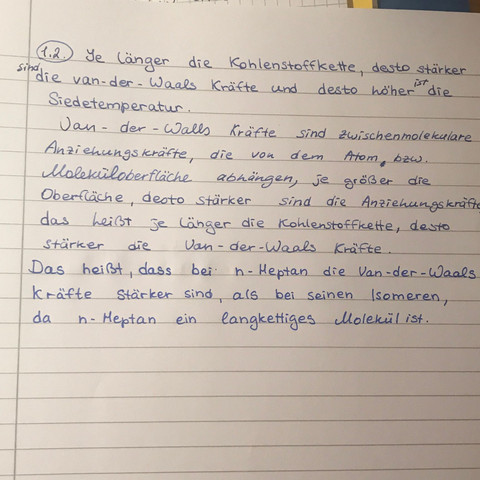 1.2. Je länger die Kohlenstoffkette, desto stärker
sind die van-der-Waals Kräfte und desto höher ist die
Siedetemperatur.
Van-der-Walls Kräfte sind zwischenmolekulare
Anziehungskräfte, die von dem Atom, bzw.
Moleküloberfläche abhängen, je größer die
Oberfläche, desto stärker sind die Anziehungskräfte
das heißt je länger die Kohlenstoffkette, desto
stärker die Van-der-Waals Kräfte.
Das heißt, dass bei n-Heptan die Van-der-Waals
Kräfte stärker sind, als bei seinen Isomeren,
da n-Heptan ein langkettiges Molekül ist.